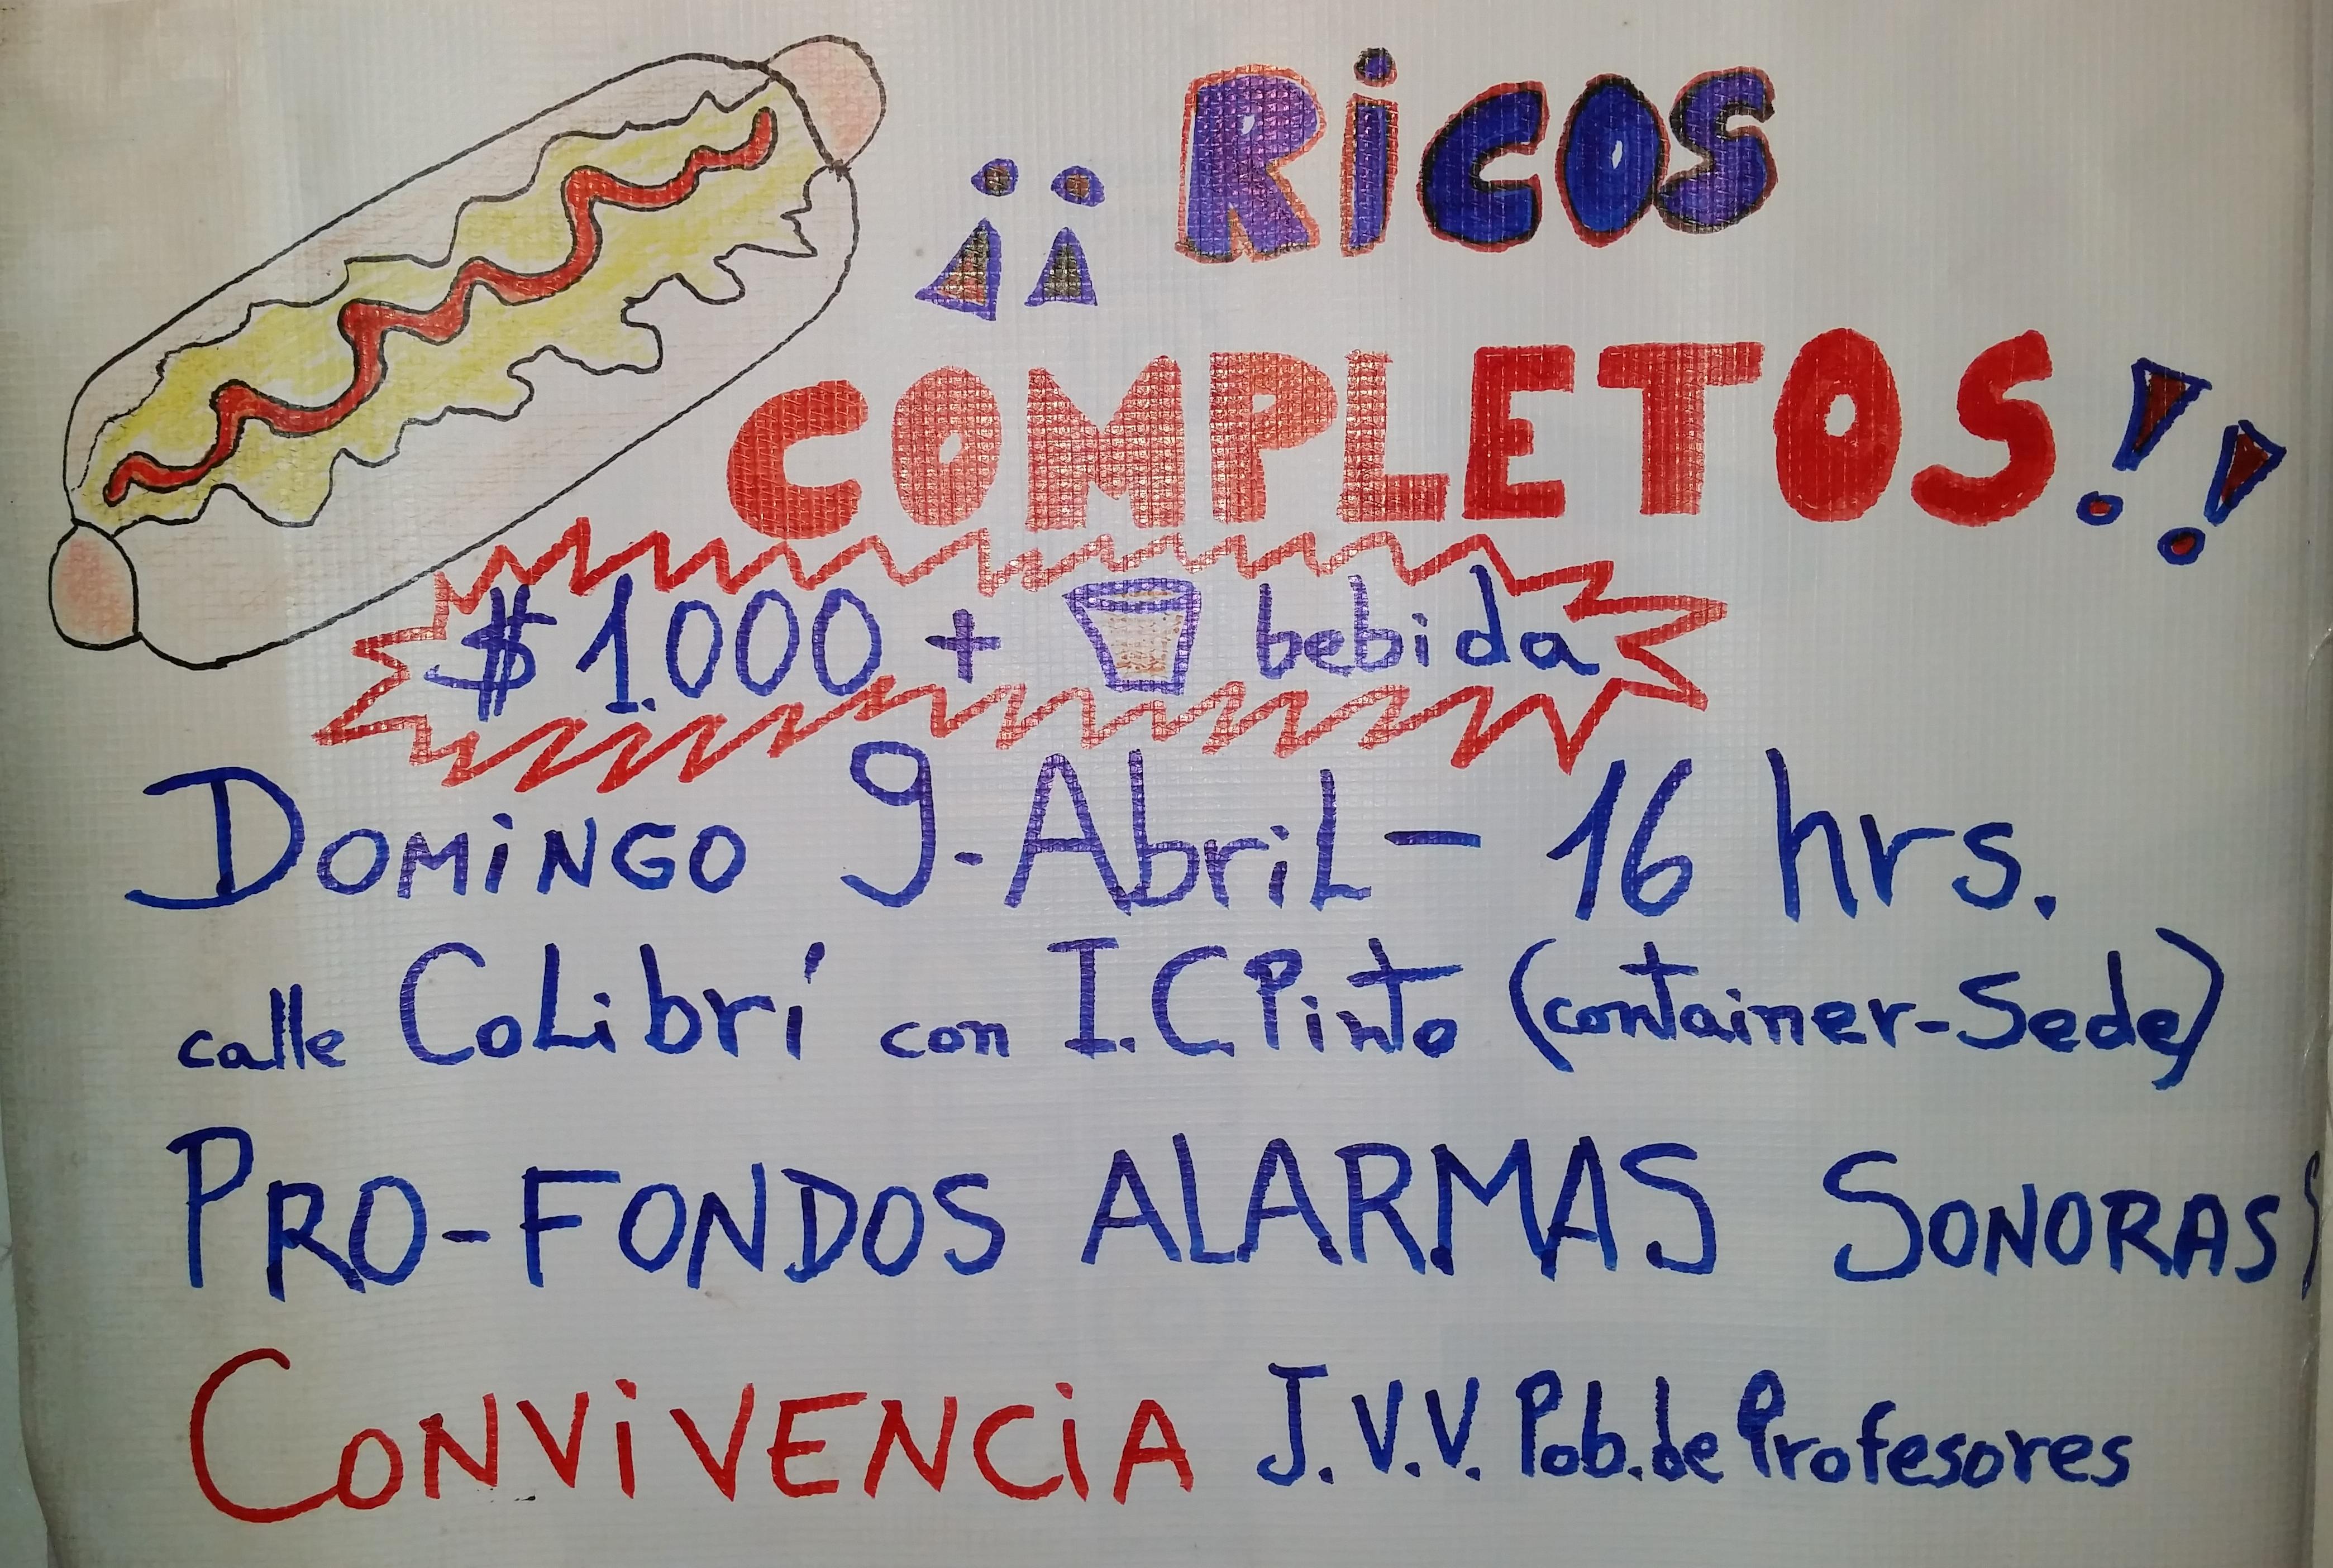 ¡¡ RiCOS
COMPLETOS!!
$1.000 + bebida
DOMiNGO 9-AbriL - 16 hrs.
calle CoLibrí con I.C.Pinto (container-Sede)
PRO-FONDOS ALARMAS SONORAS
CONViVENCiA J.V.V. Pob. de Profesores